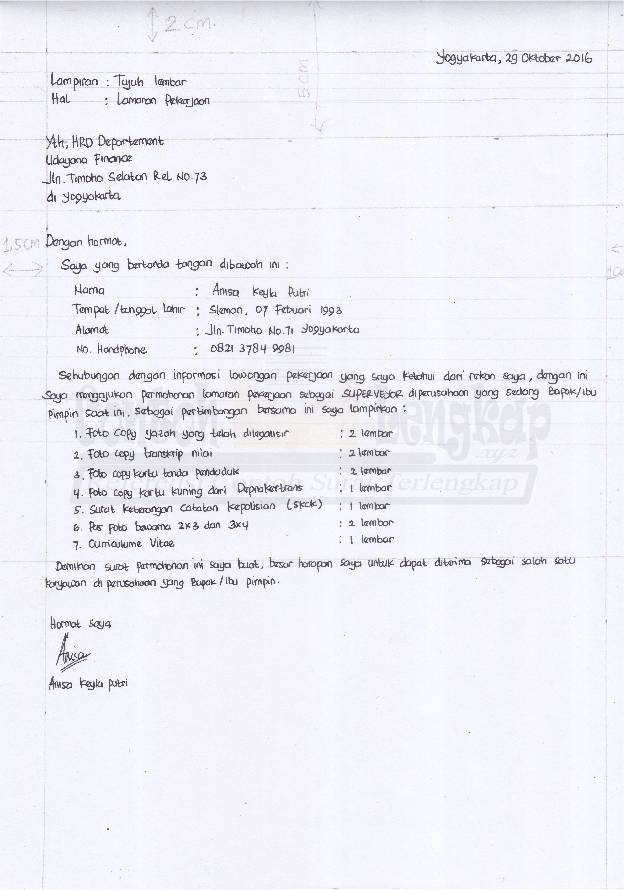 2 cm.
Yogyakarta, 29 Oktober 2016
5 cm
Lampiran : Tujuh lembar
Hal : Lamaran Pekerjaan
Yth, HRD Departement
Udayana Finance
Jln. Timoho Selatan Rel No.73
di Yogyakarta
1,5 cm Dengan hormat,
Saya yang bertanda tangan dibawah ini :
Nama : Anisa Keyla Putri
Tempat /tanggal lahir : Sleman, 07 Febuari 1993
Alamat : Jln. Timoho No.71 Yogyakarta
No. Handphone : 0821 3784 9981
Sehubungan dengan informasi lowongan pekerjaan yang saya ketahui dari rekan saya, dengan ini
Saya mengajukan permohonan lamaran pekerjaan sebagai SUPERVISOR diperusahaan yang sedang Bapak/Ibu
pimpin saat ini. Sebagai pertimbangan bersama ini saya lampirkan :
1. Foto copy ijazah yang telah dilegalisir : 2 lembar
2. Foto copy transkrip nilai : 2 lembar
3. Foto copy kartu tanda penduduk : 2 lembar
4. Foto copy kartu kuning dari Depnakertrans : 1 lembar
5. Surat keterangan Catatan Kepolisian (SKCK) : 1 lembar
6. Pas foto bewarna 2x3 dan 3x4 : 2 lembar
7. Curriculume Vitae : 1 lembar
Demikian surat permohonan ini saya buat, besar harapan saya untuk dapat diterima sebagai salah satu
karyawan di perusahaan yang Bapak/Ibu pimpin.
Hormat saya
Anisa
Anisa Keyla Putri